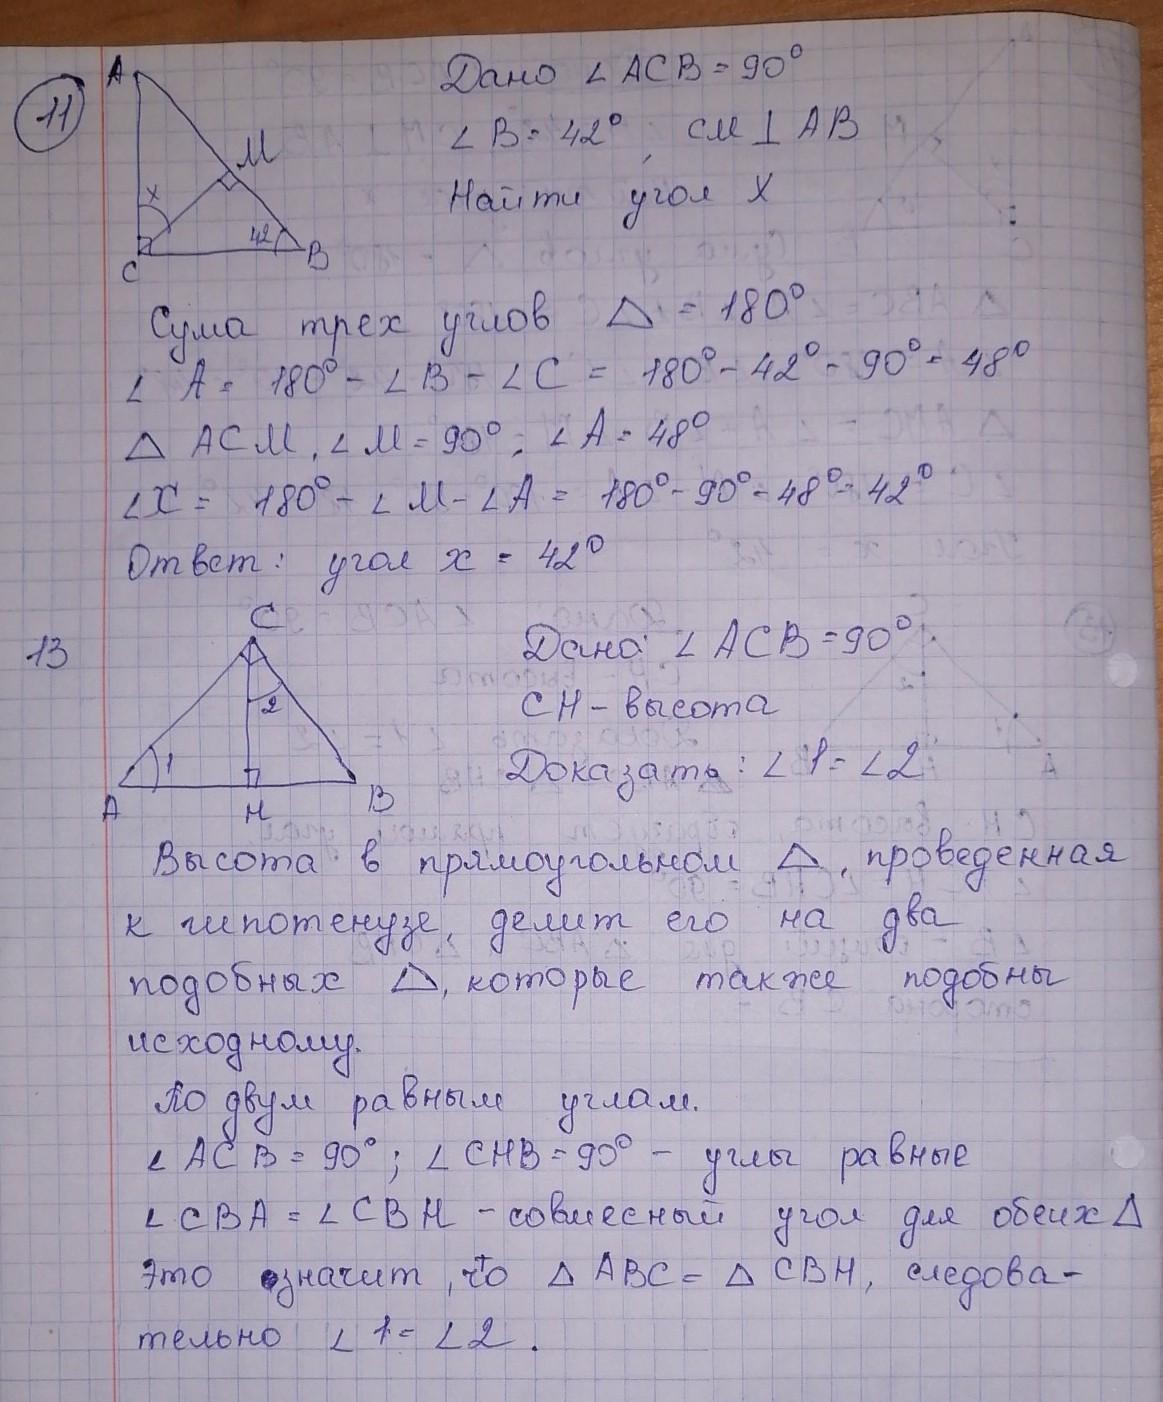 11
A
M
x
42
C
B
Дано ∠ ACB = 90°
∠ B = 42°, CM ⊥ AB
Найти угол X
Сума трех углов △ = 180°
∠ A = 180° - ∠ B - ∠ C = 180° - 42° - 90° = 48°
△ ACM, ∠ M = 90°; ∠ A = 48°
∠ X = 180° - ∠ M - ∠ A = 180° - 90° - 48° = 42°
Ответ: угол x = 42°
13
C
2
1
A
H
B
Дано: ∠ ACB = 90°
CH - высота
Доказать: ∠ 1 = ∠ 2
Высота в прямоугольном △, проведенная
к гипотенузе, делит его на два
подобных △, которые также подобны
исходному.
По двум равным углам.
∠ ACB = 90°; ∠ CHB = 90° - углы равные
∠ CBA = ∠ CBH - совмесный угол для обеих △
Это означит, что △ ABC = △ CBH, следова-
тельно ∠ 1 = ∠ 2.